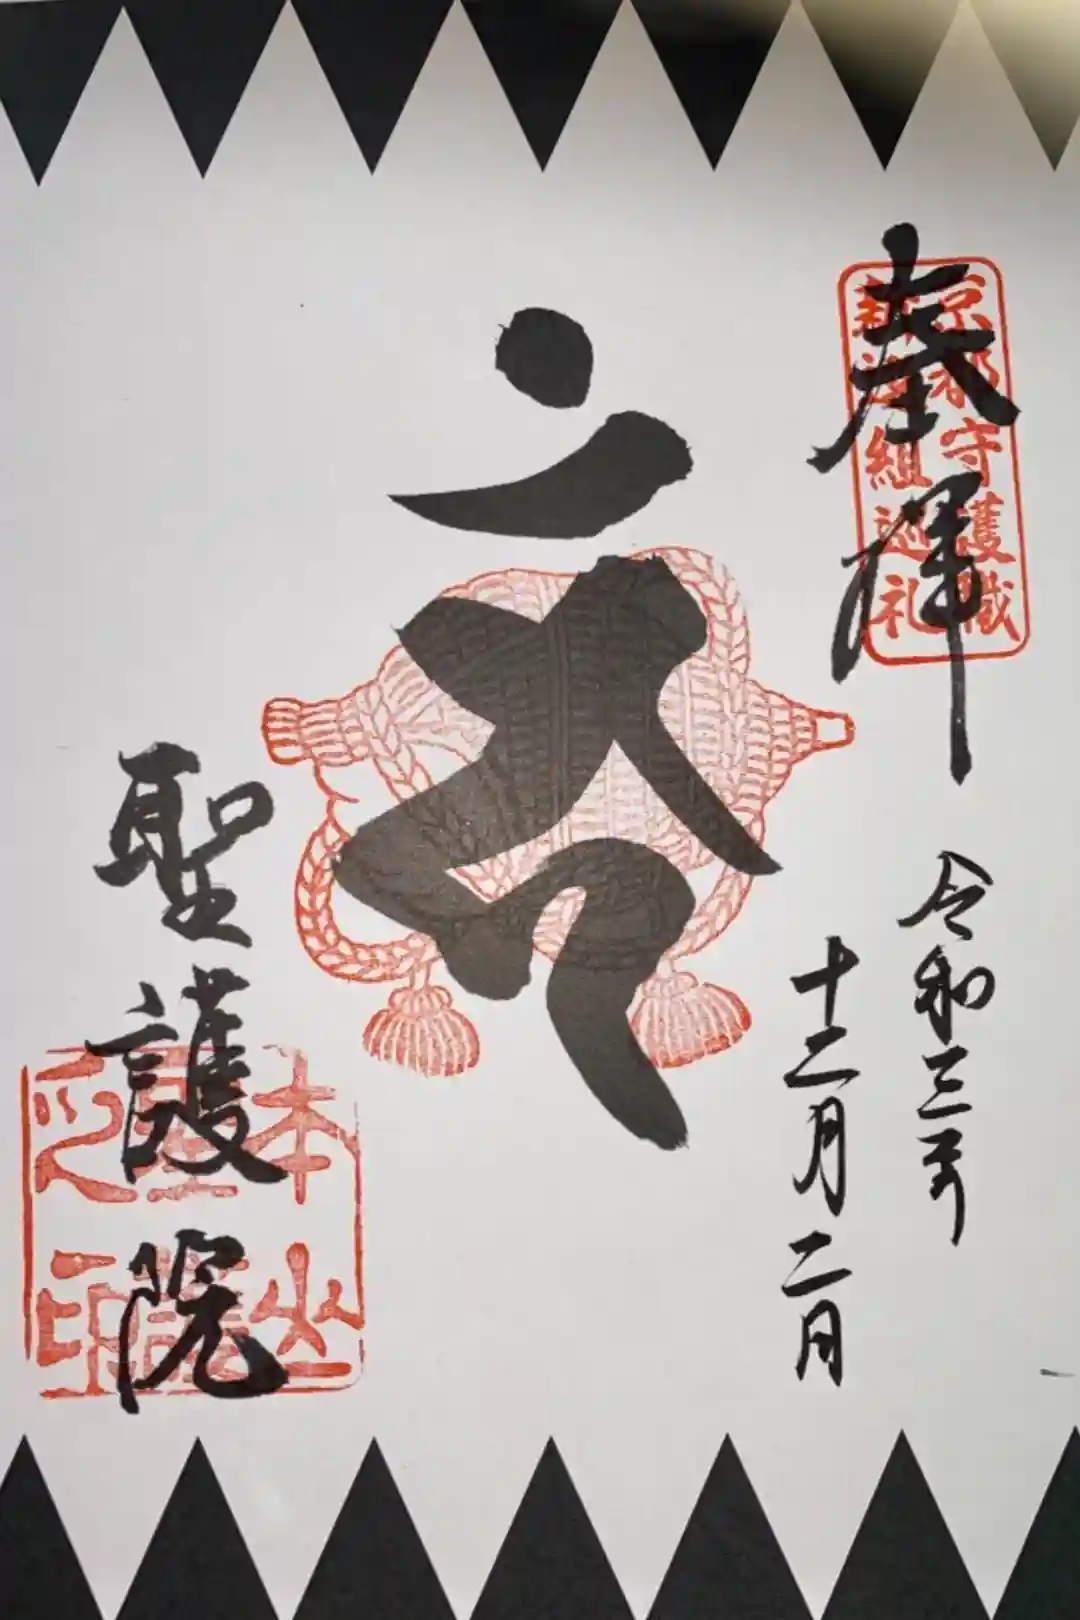 奉拝
京都守護職
新選組巡礼
令和三年
十二月二日
聖護院
本山
聖護
之印